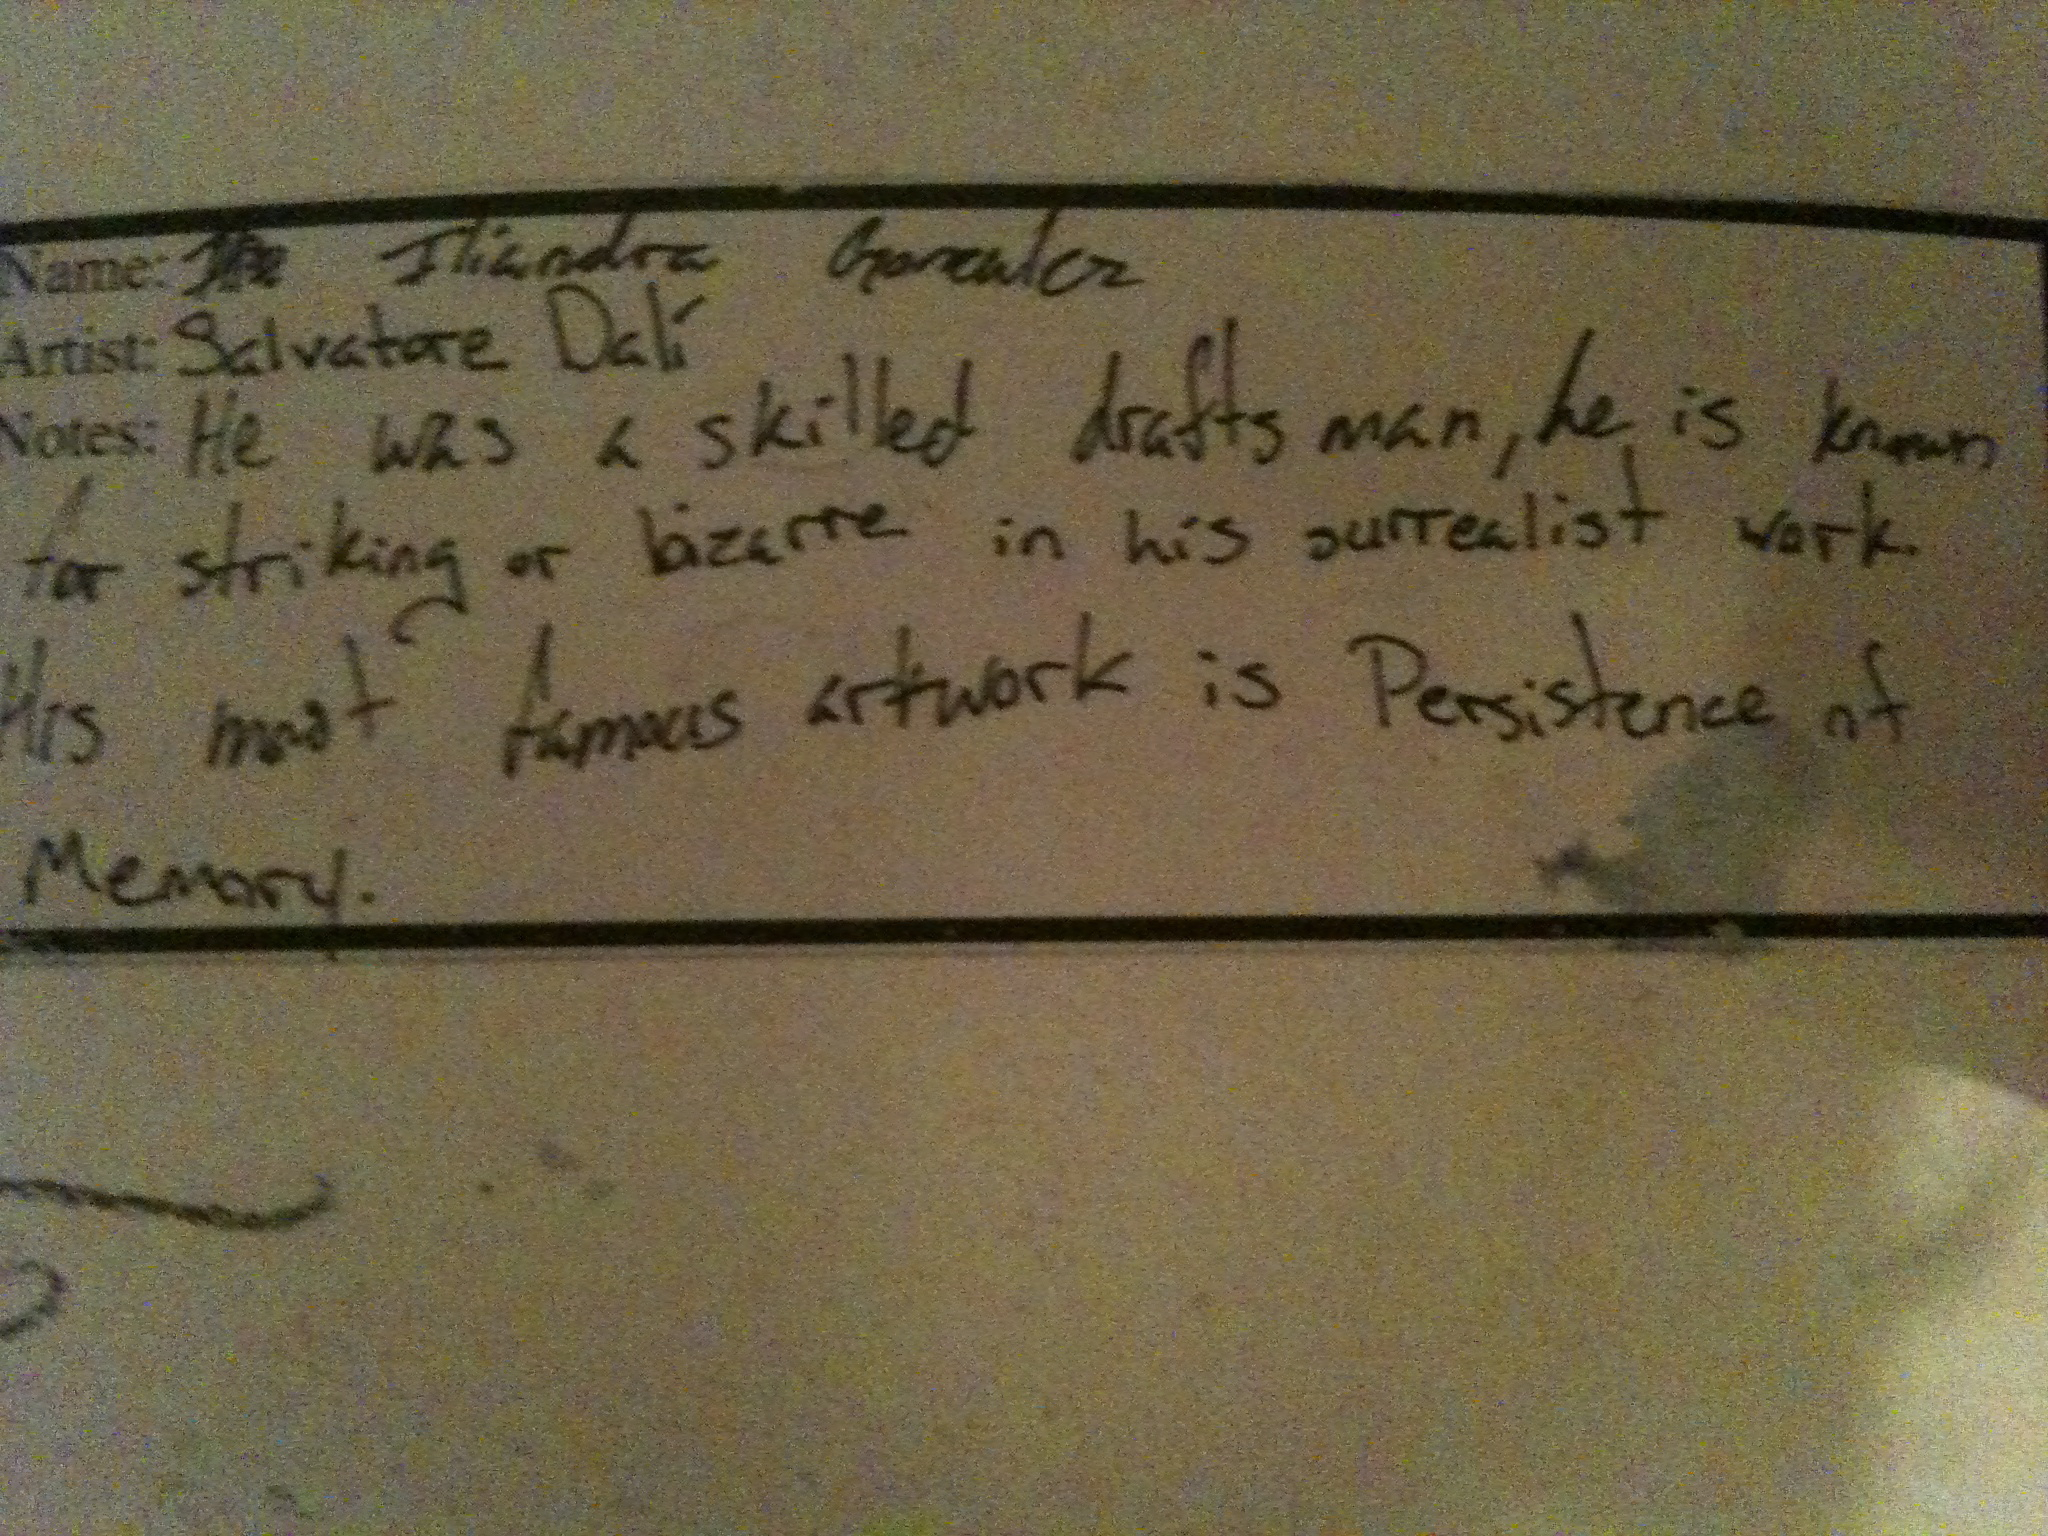 Name: Iliandra Gonzalez
Artist: Salvatore Dalí
Notes: He was a skilled draftsman, he is known
for striking or bizarre in his surrealist work.
His most famous artwork is Persistence of
Memory.